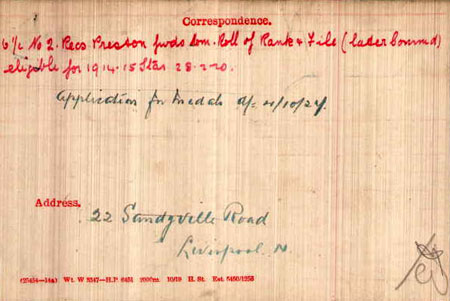 Correspondence.
O i/c No 2. Recs Preston fwds Nom. Roll of Rank & File (later Commd)
eligible for 1914-15 Star 28.2.20.
Application for medals d/- 4/10/24.
Address.
22 Sandyville Road
Liverpool. N.
(25434—14a) Wt. W 5347—H.P. 6451 2000m. 10/19 H. St. Est 5400/1253